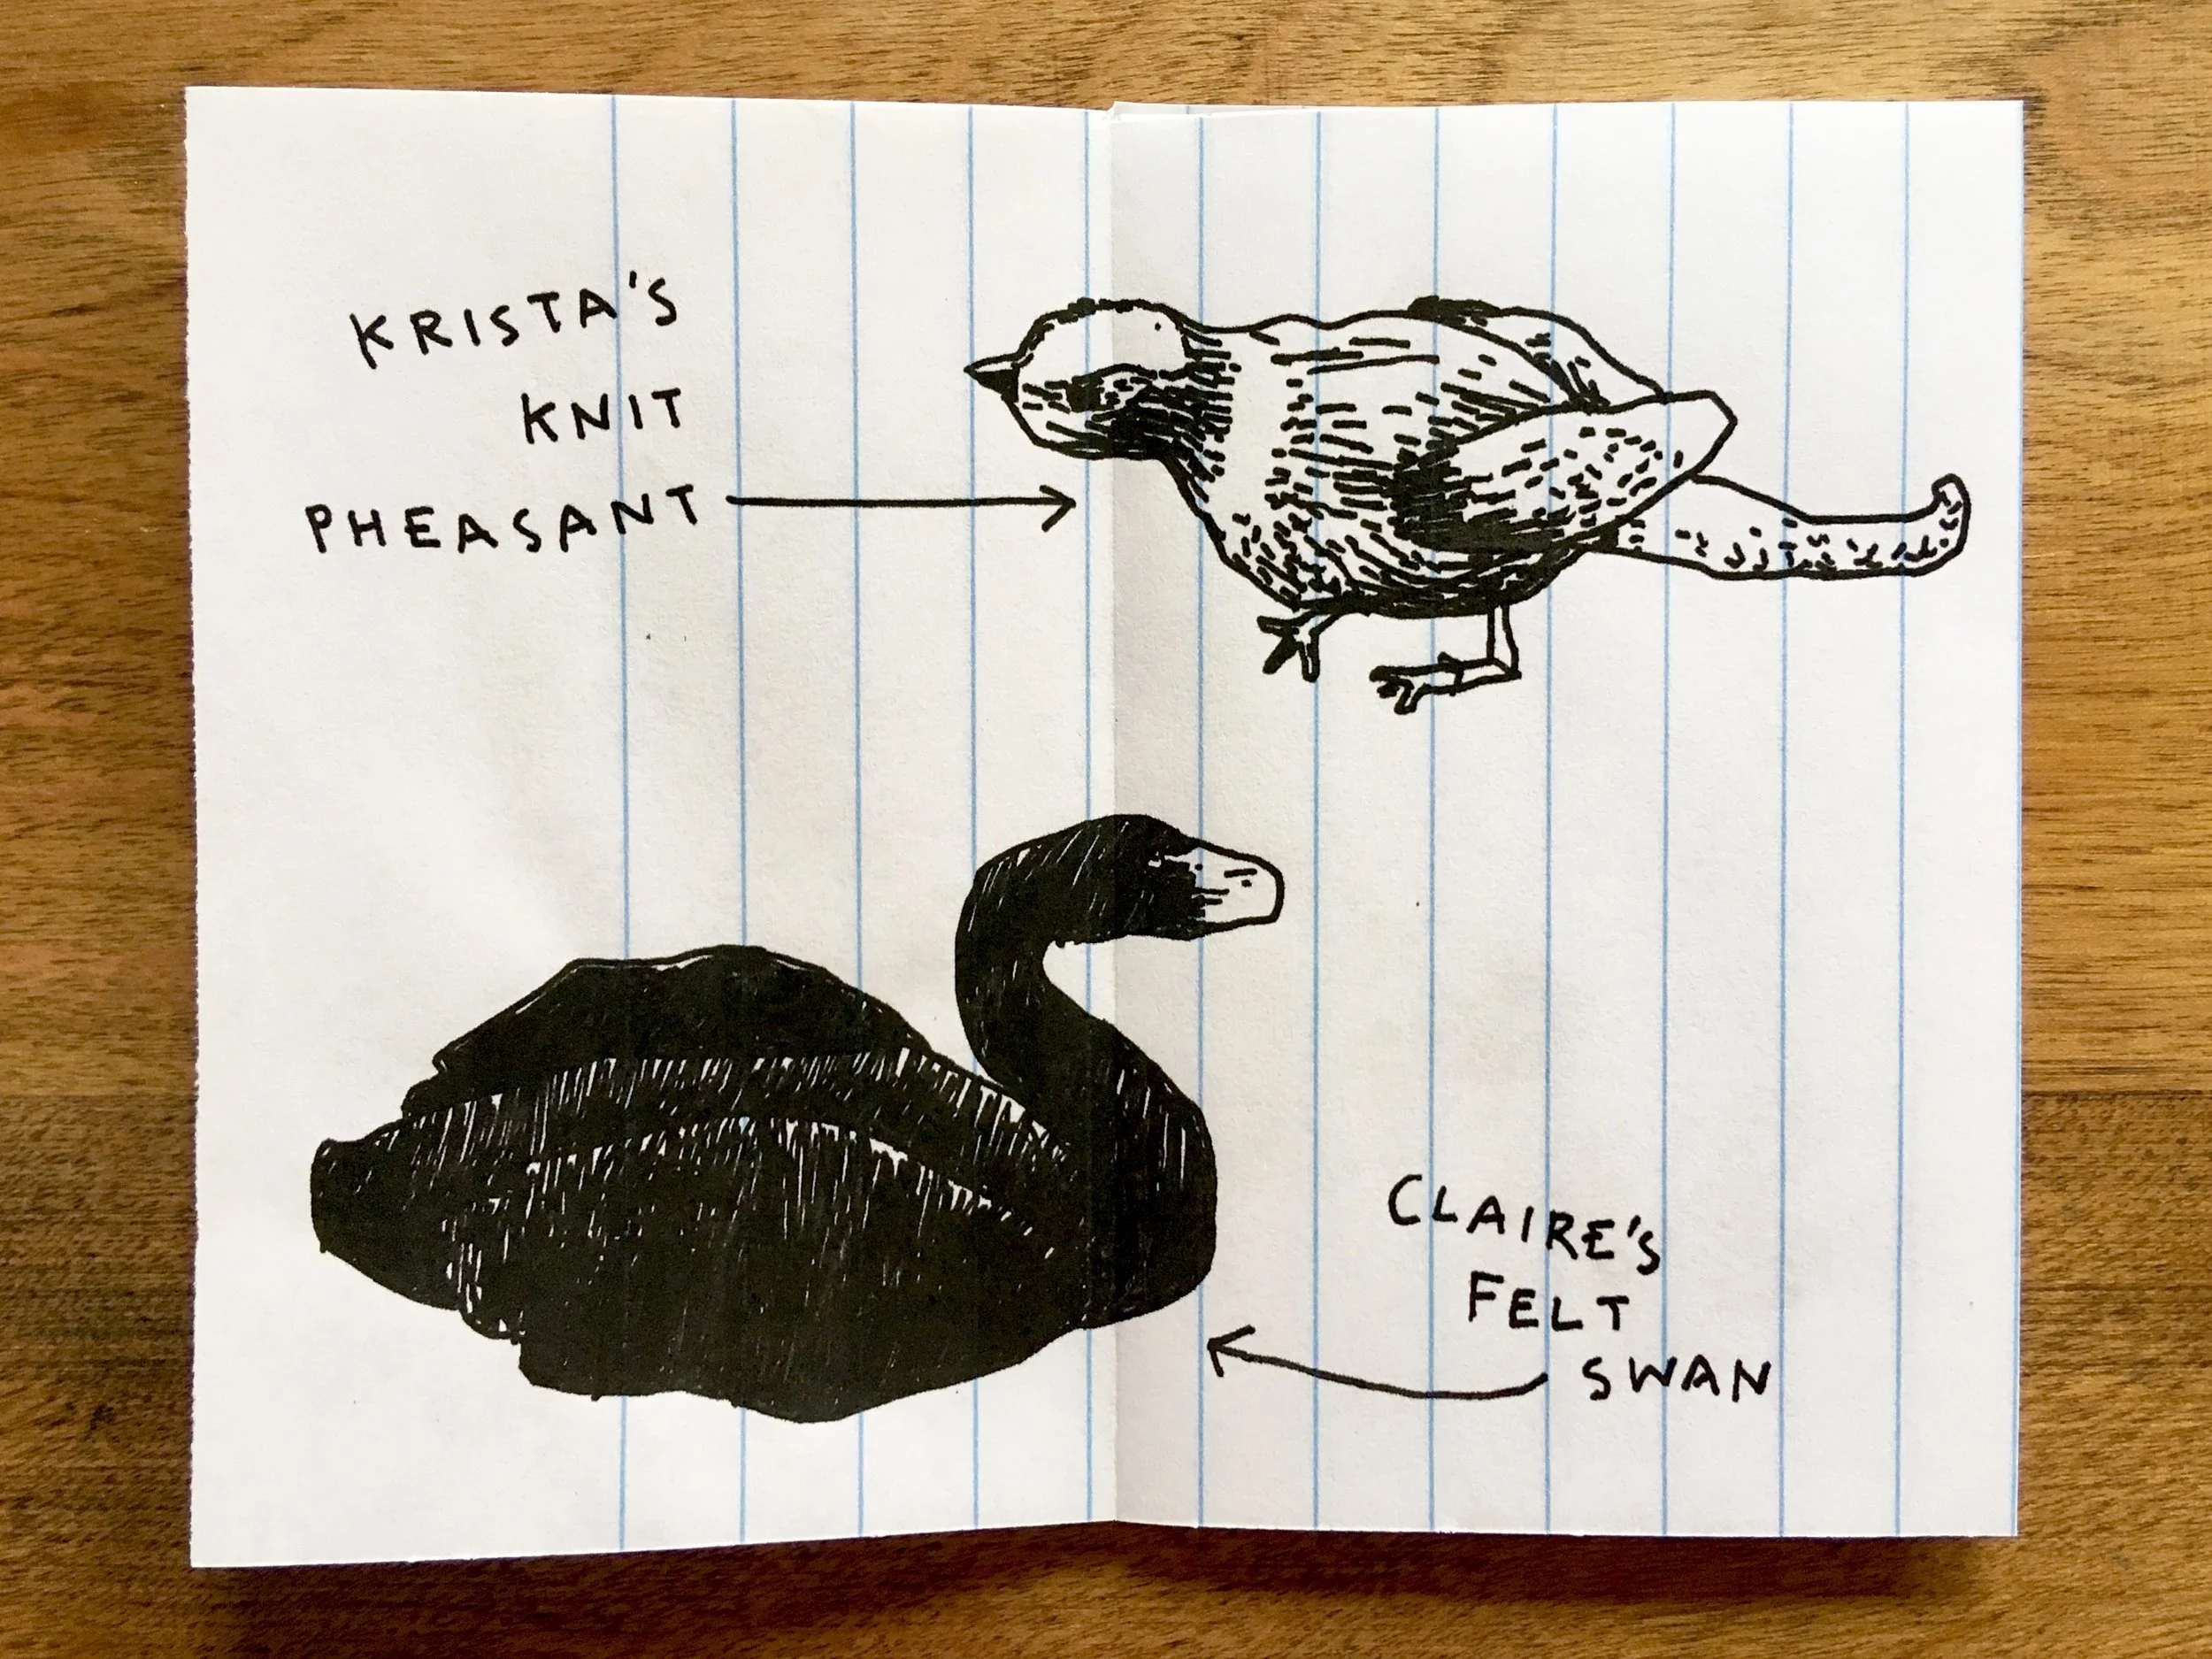 KRISTA'S
KNIT
PHEASANT
CLAIRE'S
FELT
SWAN